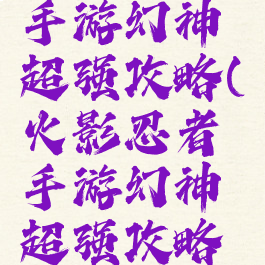 手游幻神
超强攻略(
火影忍者
手游幻神
超强攻略